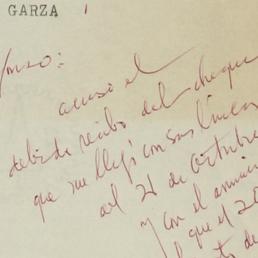 GARZA
acuso el
debido recibo del cheque
que me llegó con sus líneas
del 21 de octubre
y con el
que el 20